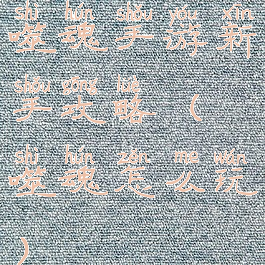 shì hún shǒu yóu xīn
噬魂手游新
shǒu gōng lüè
手攻略（
shì hún zěn me wán
噬魂怎么玩
）